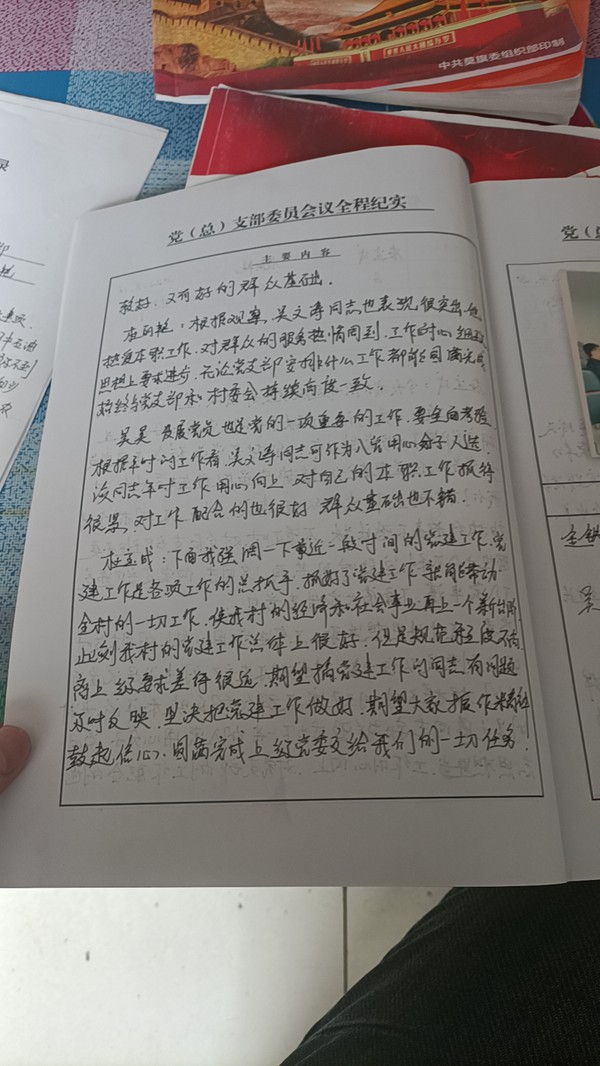 中共莫旗委组织部印制
党（总）支部委员会议全程纪实
主要内容
较好，又有好的群众基础。
：根据观察，吴文涛同志也表现很突出，他
热爱本职工作，对群众的服务热情周到，工作耐心细致
思想上要求进步，无论党支部安排什么工作都能圆满完成
始终与党支部和村委会持续高度一致。
吴昊：发展党员也是党的一项重要的工作，要全面考验
根据平时的工作看，吴文涛同志可作为入党用心分子人选
该同志平时工作用心向上，对自己的本职工作抓得
很紧，对工作配合的也很好，群众基础也不错。
杜立成：下面我强调一下最近一段时间的党建工作，党
建工作是各项工作的总抓手，抓好了党建工作，就能带动
全村的一切工作，使我村的经济和社会事业再上一个新台阶
此刻我村的党建工作总体上很好，但是规范程度不高
离上级要求差得很远，期望搞党建工作的同志有问题
及时反映，坚决把党建工作做好，期望大家振作精神
鼓起信心，圆满完成上级党委交给我们的一切任务。